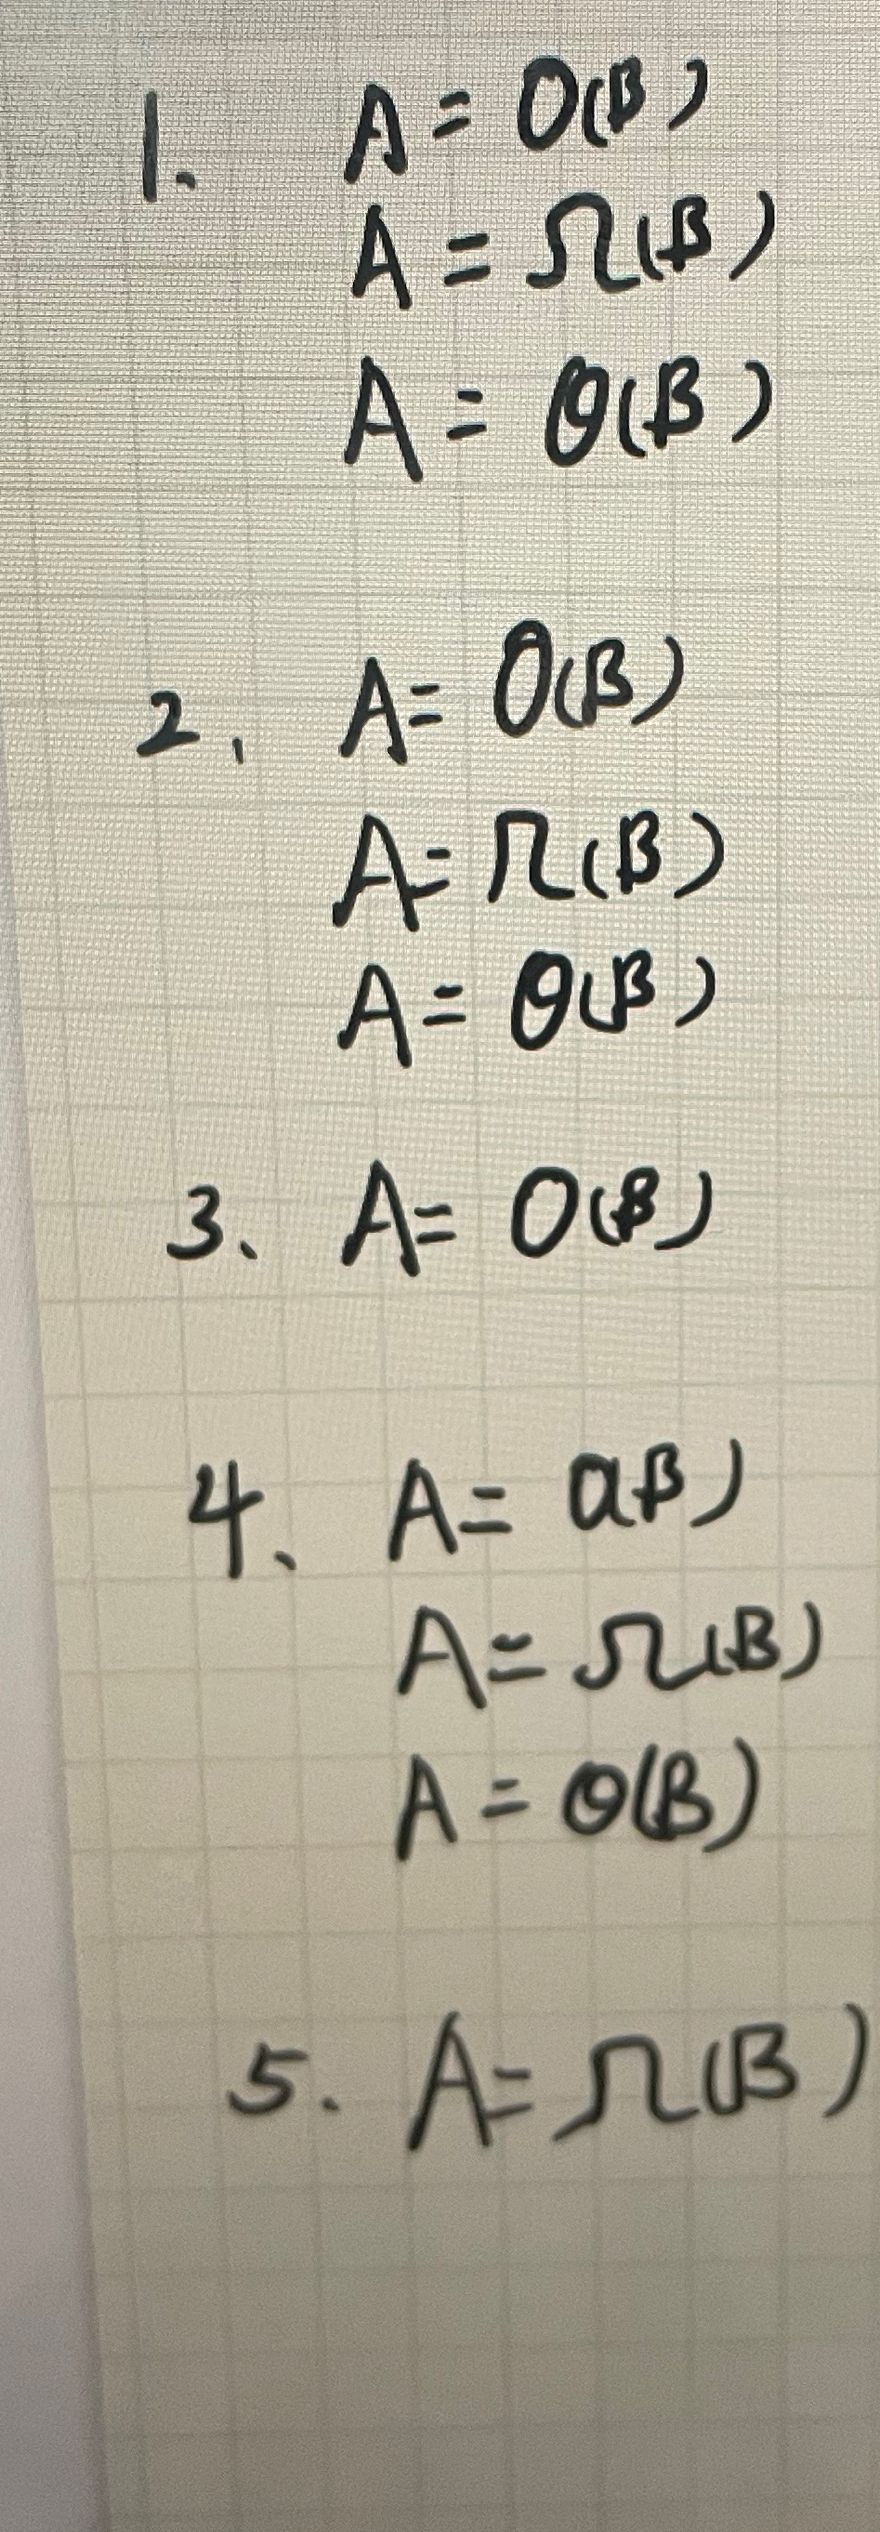 1. A = O(B)
A = Ω(B)
A = Θ(B)
2. A = O(B)
A = Ω(B)
A = Θ(B)
3. A = O(B)
4. A = O(B)
A = Ω(B)
A = Θ(B)
5. A = Ω(B)